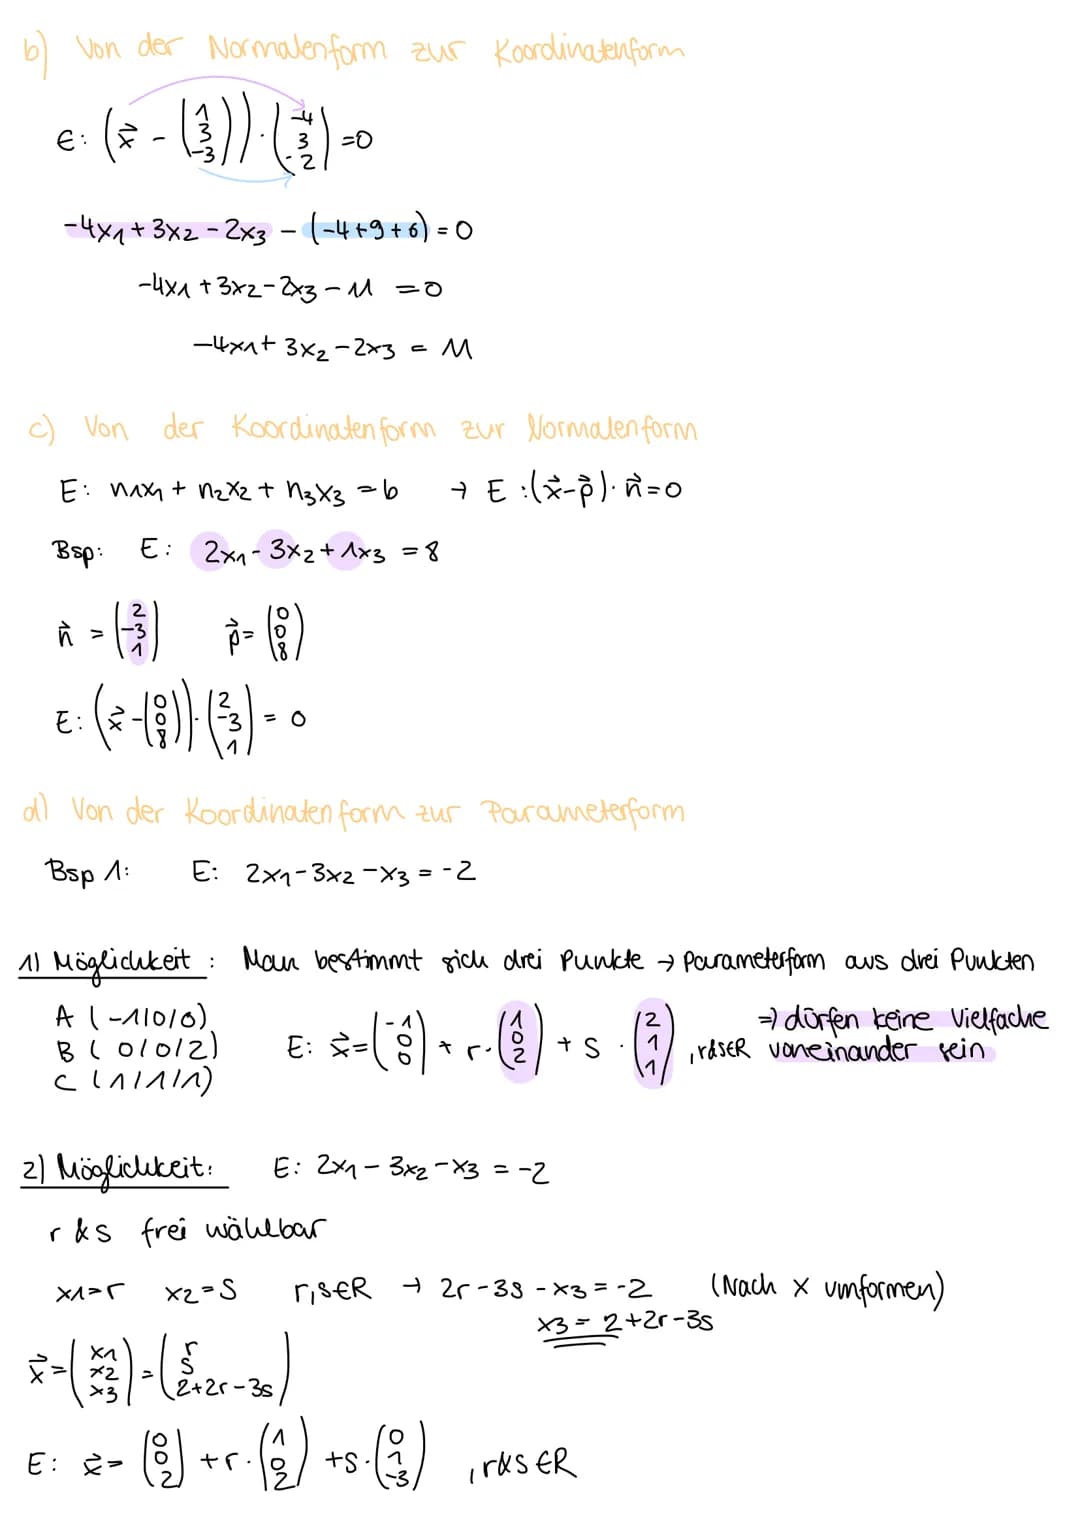 b) Von der Normalenform zur Koordinatenform
E: (x⃗ - (1 3 -3)) · (-4 3 -2) = 0
-4x1 + 3x2 - 2x3 - (-4+9+6) = 0
-4x1 + 3x2 - 2x3 - 11 = 0
-4x1 + 3x2 - 2x3 = 11
c) Von der Koordinatenform zur Normalenform
E: n1x1 + n2x2 + n3x3 = b → E: (x⃗-p⃗)·n⃗=0
Bsp: E: 2x1 - 3x2 + 1x3 = 8
n⃗ = (2 -3 1) p⃗ = (0 0 8)
E: (x⃗ - (0 0 8)) · (2 -3 1) = 0
d) Von der Koordinatenform zur Parameterform
Bsp 1: E: 2x1 - 3x2 - x3 = -2
1) Möglichkeit: Man bestimmt sich drei Punkte → Parameterform aus drei Punkten
A (-1/0/0)
B (0/0/2)
C (1/1/1)
E: x⃗ = (-1 0 0) + r · (1 0 2) + s · (2 1 1), r&s∈R
⇒ dürfen keine Vielfache
voneinander sein
2) Möglichkeit: E: 2x1 - 3x2 - x3 = -2
r & s frei wählbar
x1=r x2=s r,s∈R → 2r - 3s - x3 = -2 (Nach x umformen)
x3 = 2+2r-3s
x⃗ = (x1 x2 x3) = (r s 2+2r-3s)
E: x⃗ = (0 0 2) + r · (1 0 2) + s · (0 1 -3), r&s∈R